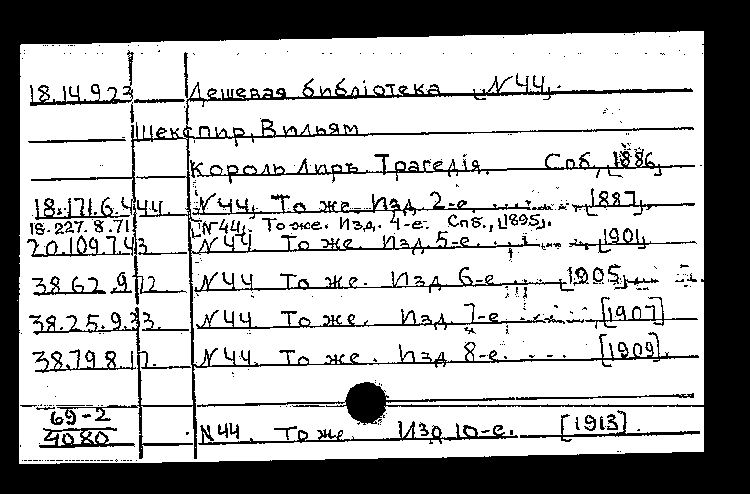 18.14.9.23 Дешевая библіотека [N44].
Шекспир, Вильям
Король Лиръ Трагедія. Спб., [1886]
18.171.6.444. N44. То же. Изд. 2-е. [1887].
18.227.8.71 [N44]. То же. Изд. 4-е. Спб., [1895].
20.109.7.43 N44 То же. Изд 5-е. [1901]
38 62.9.12 N44. То же. Изд 6-е [1905]
38.25.9.33. N44. То же. Изд 7-е [1907]
38.79 8.17. N44. То же. Изд 8-е. ... [1909].
69-2
4080 N44. То же. Изд 10-е. [1913].